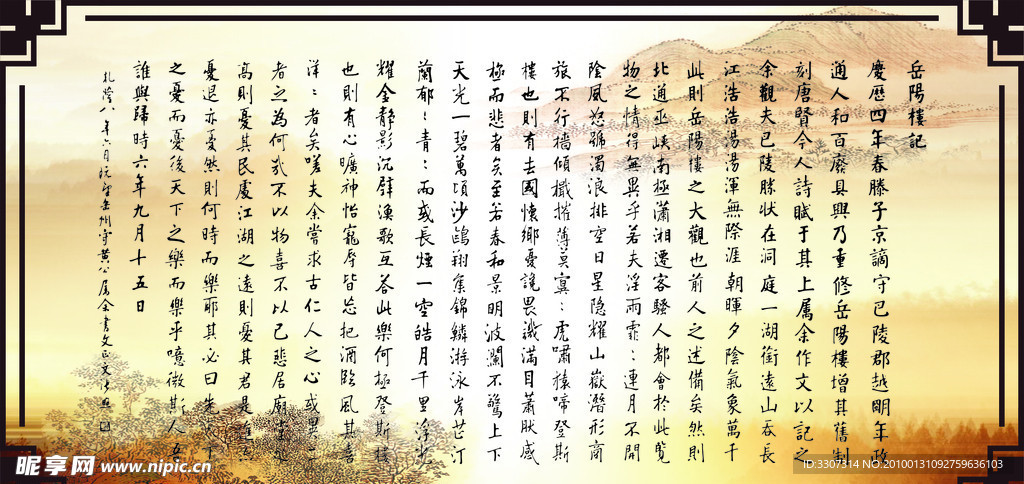 岳陽樓記
慶歷四年春滕子京謫守巴陵郡越明年政
通人和百廢具興乃重修岳陽樓增其舊制
刻唐賢今人詩賦于其上屬余作文以記之
余觀夫巴陵勝狀在洞庭一湖銜遠山吞長
江浩浩湯湯渾無際涯朝暉夕陰氣象萬千
此則岳陽樓之大觀也前人之述備矣然則
北通巫峽南極瀟湘遷客騷人都會於此覽
物之情得無異乎若夫淫雨霏：連月不開
陰風怒號濁浪排空日星隐耀山嶽潛形商
旅不行檣傾檝摧薄莫冥：虎嘯猿啼登斯
樓也則有去國懷鄉憂讒畏譏滿目蕭肰感
極而悲者矣至若春和景明波瀾不驚上下
天光一碧萬頃沙鷗翔集錦鱗游泳岸芷汀
蘭郁：青：而或長煙一空皓月千里浮光
耀金靜影沉璧漁歌互荅此樂何極登斯樓
也則有心曠神怡寵辱皆忘把酒臨風其喜
洋：者矣嗟夫余嘗求古仁人之心或異二
者之為何哉不以物喜不以己悲居廟堂之
高則憂其民處江湖之遠則憂其君是進亦
憂退亦憂然則何時而樂耶其必曰先天下
之憂而憂後天下之樂而樂乎噫微斯人吾
誰與歸時六年九月十五日
昵享网 www.nipic.cn
ID:3307314 NO.20100131092759636103